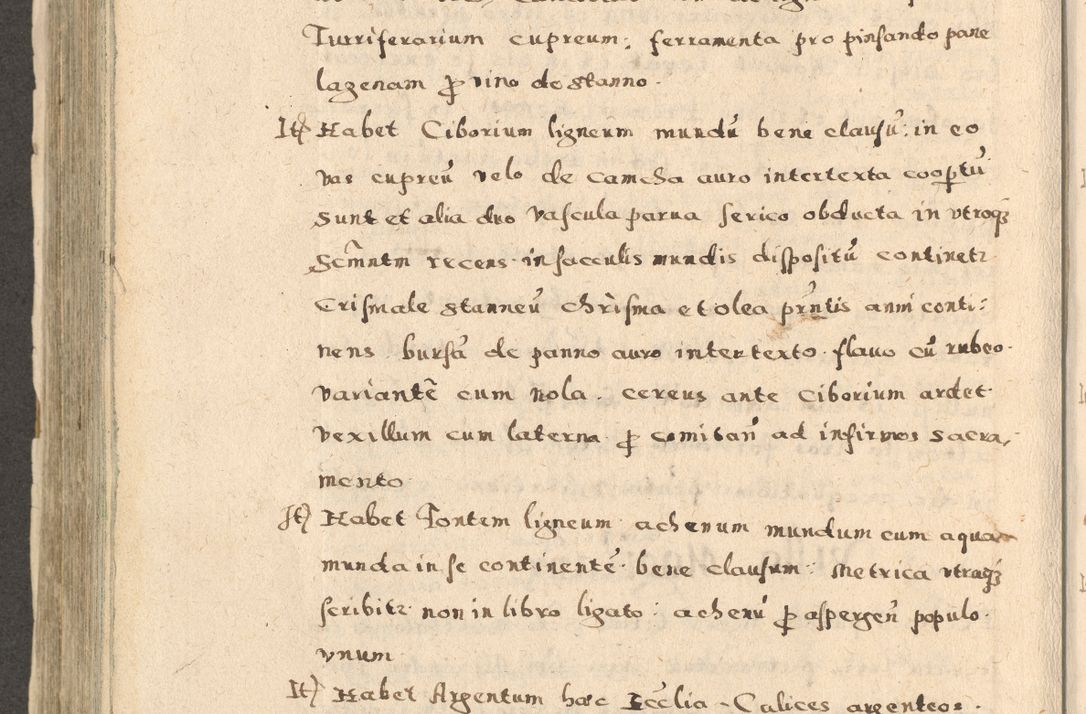 Turriferarium cupreum, ferramenta pro pinsando pane
lagenam p vino de stanno.
It Habet Ciborium ligneum mundū bene clausū: in eo
vas cupreū velo de camcha auro intertexta coopertū
sunt et alia duo vascula parua serico obducta in vtroq3
Scm̄ntm recens in sacculis mundis dispositū continetr
Crismale stanneū chrisma et olea prn̄tis anni conti:
nens bursā de panno auro intertexto flauo cū rubeo
variantē cum nola. cereus ante Ciborium ardet.
vexillum cum laterna p comitan̄ ad infirmos sacra,
mento
It Habet Fontem ligneum achenum mundum cum aqua
munda in se continentē bene clausum: Metrica vtraq3
scribitr non in libro ligato: achenū p aspergen̄ populo.
vnum
It Habet Argentum haec Eccl̄ia Calices argenteos.